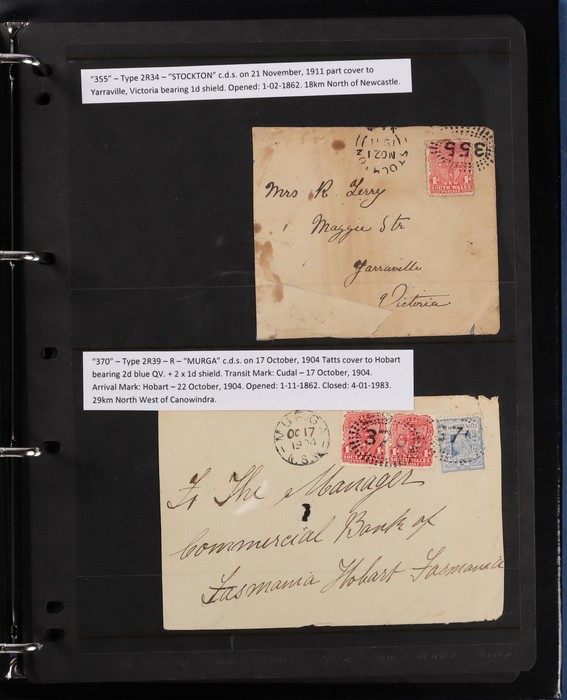 "355" – Type 2R34 – "STOCKTON" c.d.s. on 21 November, 1911 part cover to
Yarraville, Victoria bearing 1d shield. Opened: 1-02-1862. 18km North of Newcastle.
355
NO21
Mrs R. Terry
Maggie Str
Yarraville
Victoria
SOUTH WALES
"370" – Type 2R39 – R – "MURGA" c.d.s. on 17 October, 1904 Tatts cover to Hobart
bearing 2d blue QV. + 2 x 1d shield. Transit Mark: Cudal – 17 October, 1904.
Arrival Mark: Hobart – 22 October, 1904. Opened: 1-11-1862. Closed: 4-01-1983.
29km North West of Canowindra.
MURGA
OC 17
1904
N.S.W
370
37
To The Manager
Commercial Bank of
Tasmania Hobart Tasmania